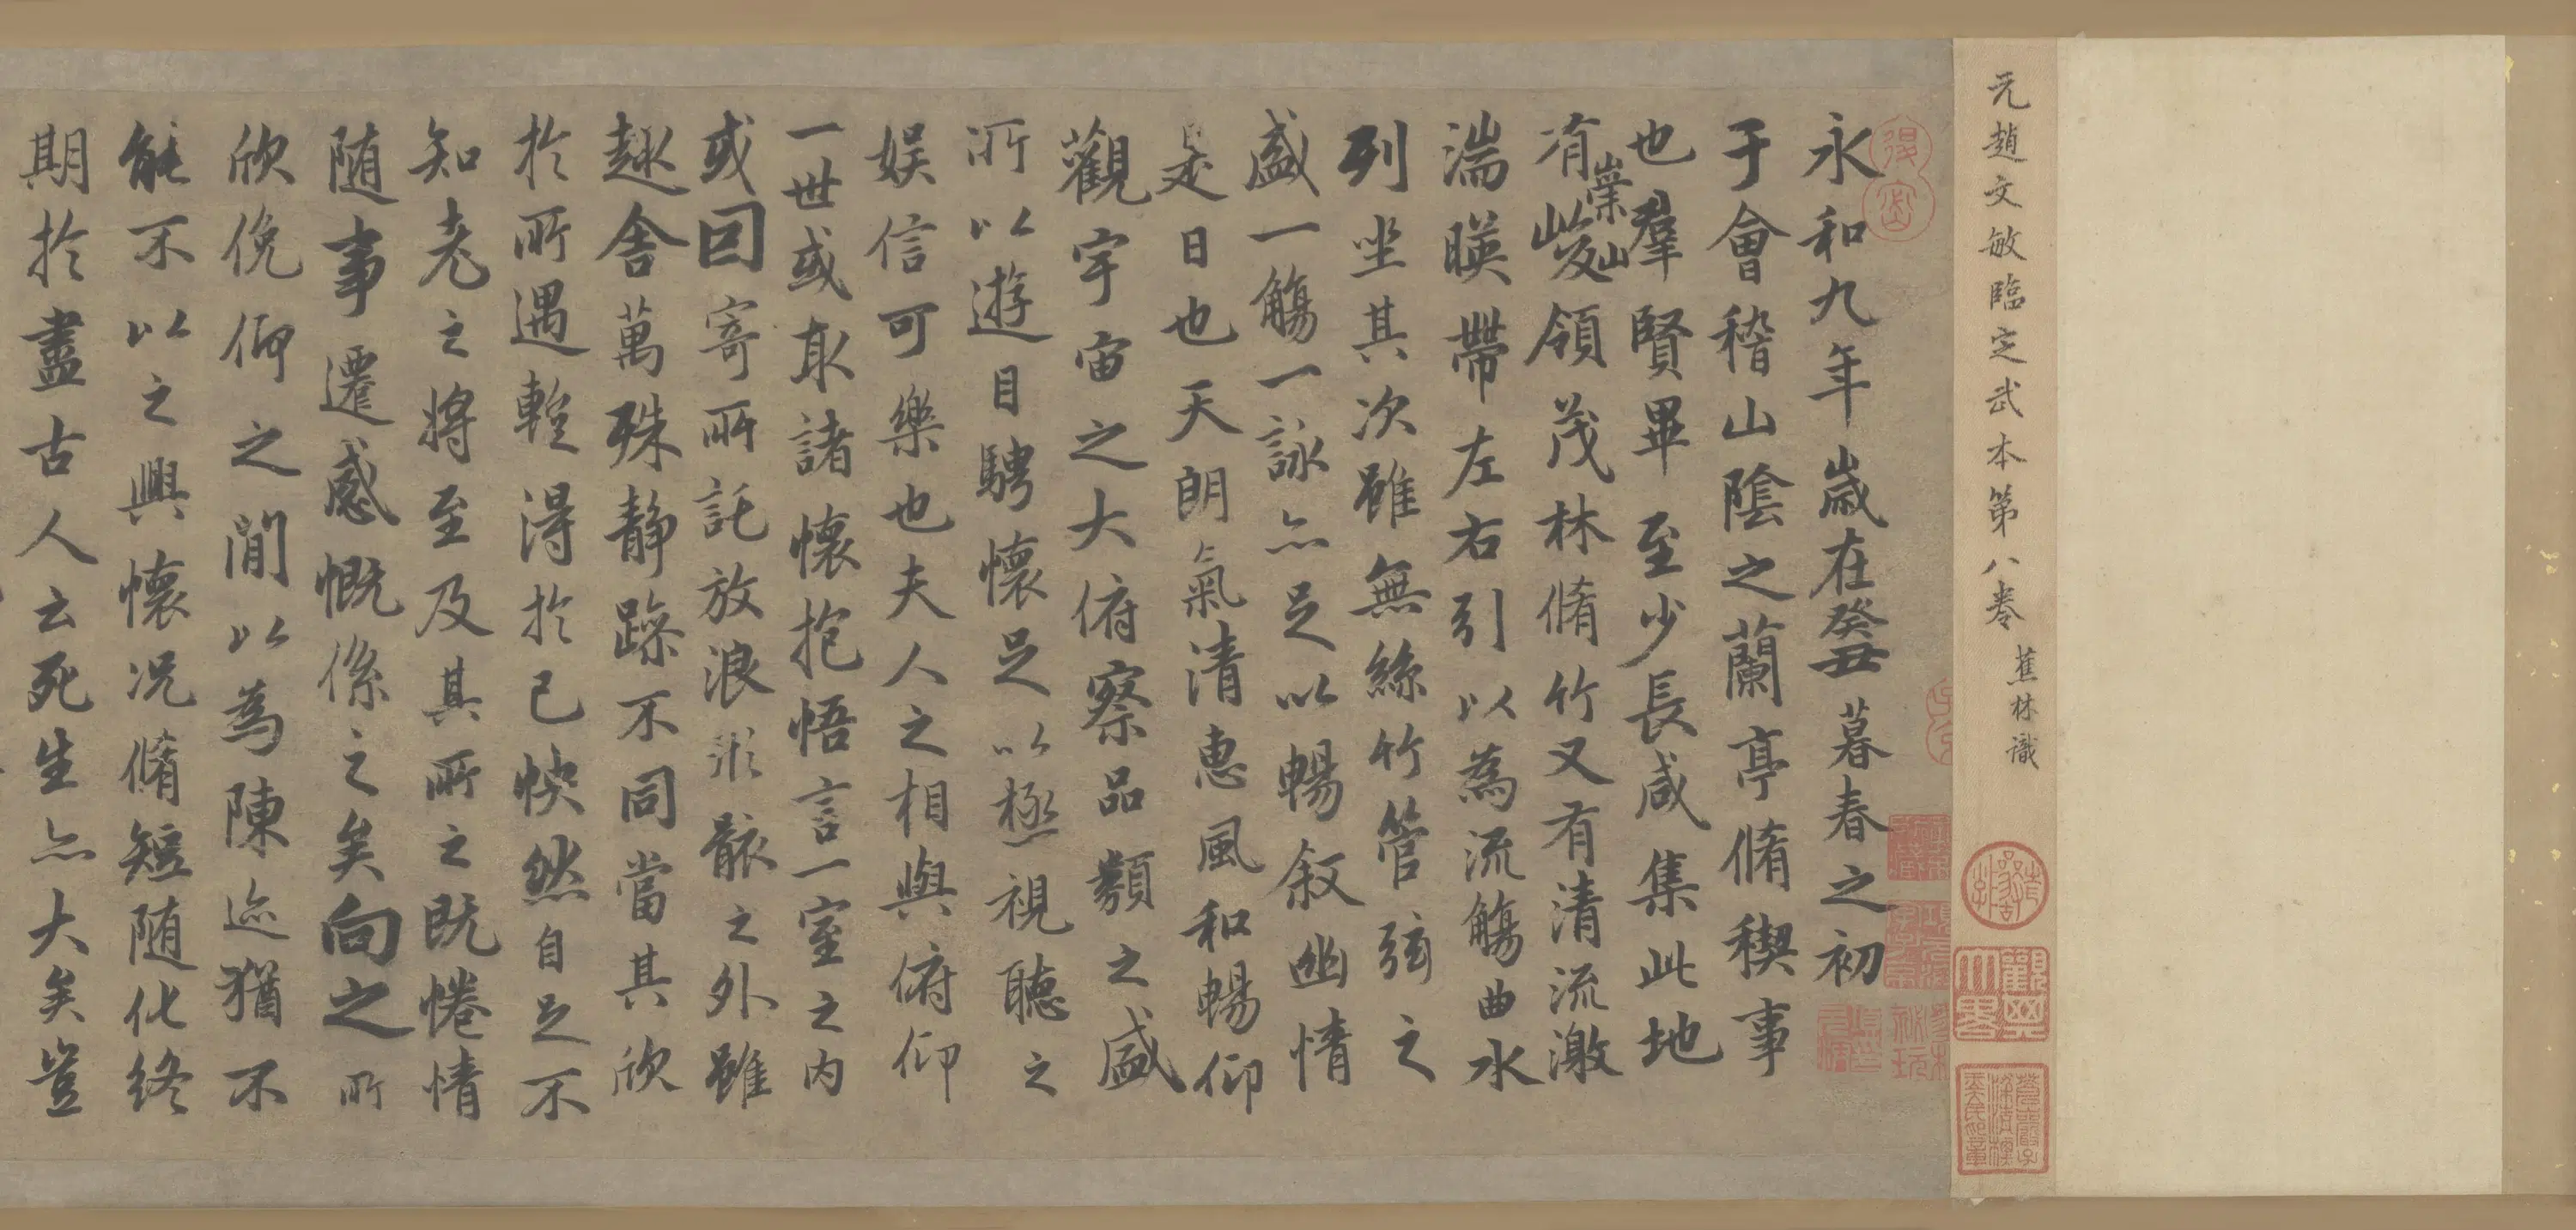 元趙文敏臨定武本第八卷
蕉林識
永和九年歲在癸丑暮春之初
于會稽山陰之蘭亭脩稧事
也羣賢畢至少長咸集此地
崇山
有峻領茂林脩竹又有清流激
湍暎帶左右引以為流觴曲水
列坐其次雖無絲竹管弦之
盛一觴一詠亦足以暢叙幽情
是日也天朗氣清惠風和暢仰
觀宇宙之大俯察品類之盛
所以遊目騁懷足以極視聽之
娛信可樂也夫人之相與俯仰
一世或取諸懷抱悟言一室之內
或因寄所託放浪形骸之外雖
趣舍萬殊静躁不同當其欣
於所遇蹔得於己怏然自足不
知老之將至及其所之既惓情
随事遷感慨係之矣向之所
欣俛仰之閒以為陳迹猶不
能不以之興懷况脩短随化終
期於盡古人云死生亦大矣豈